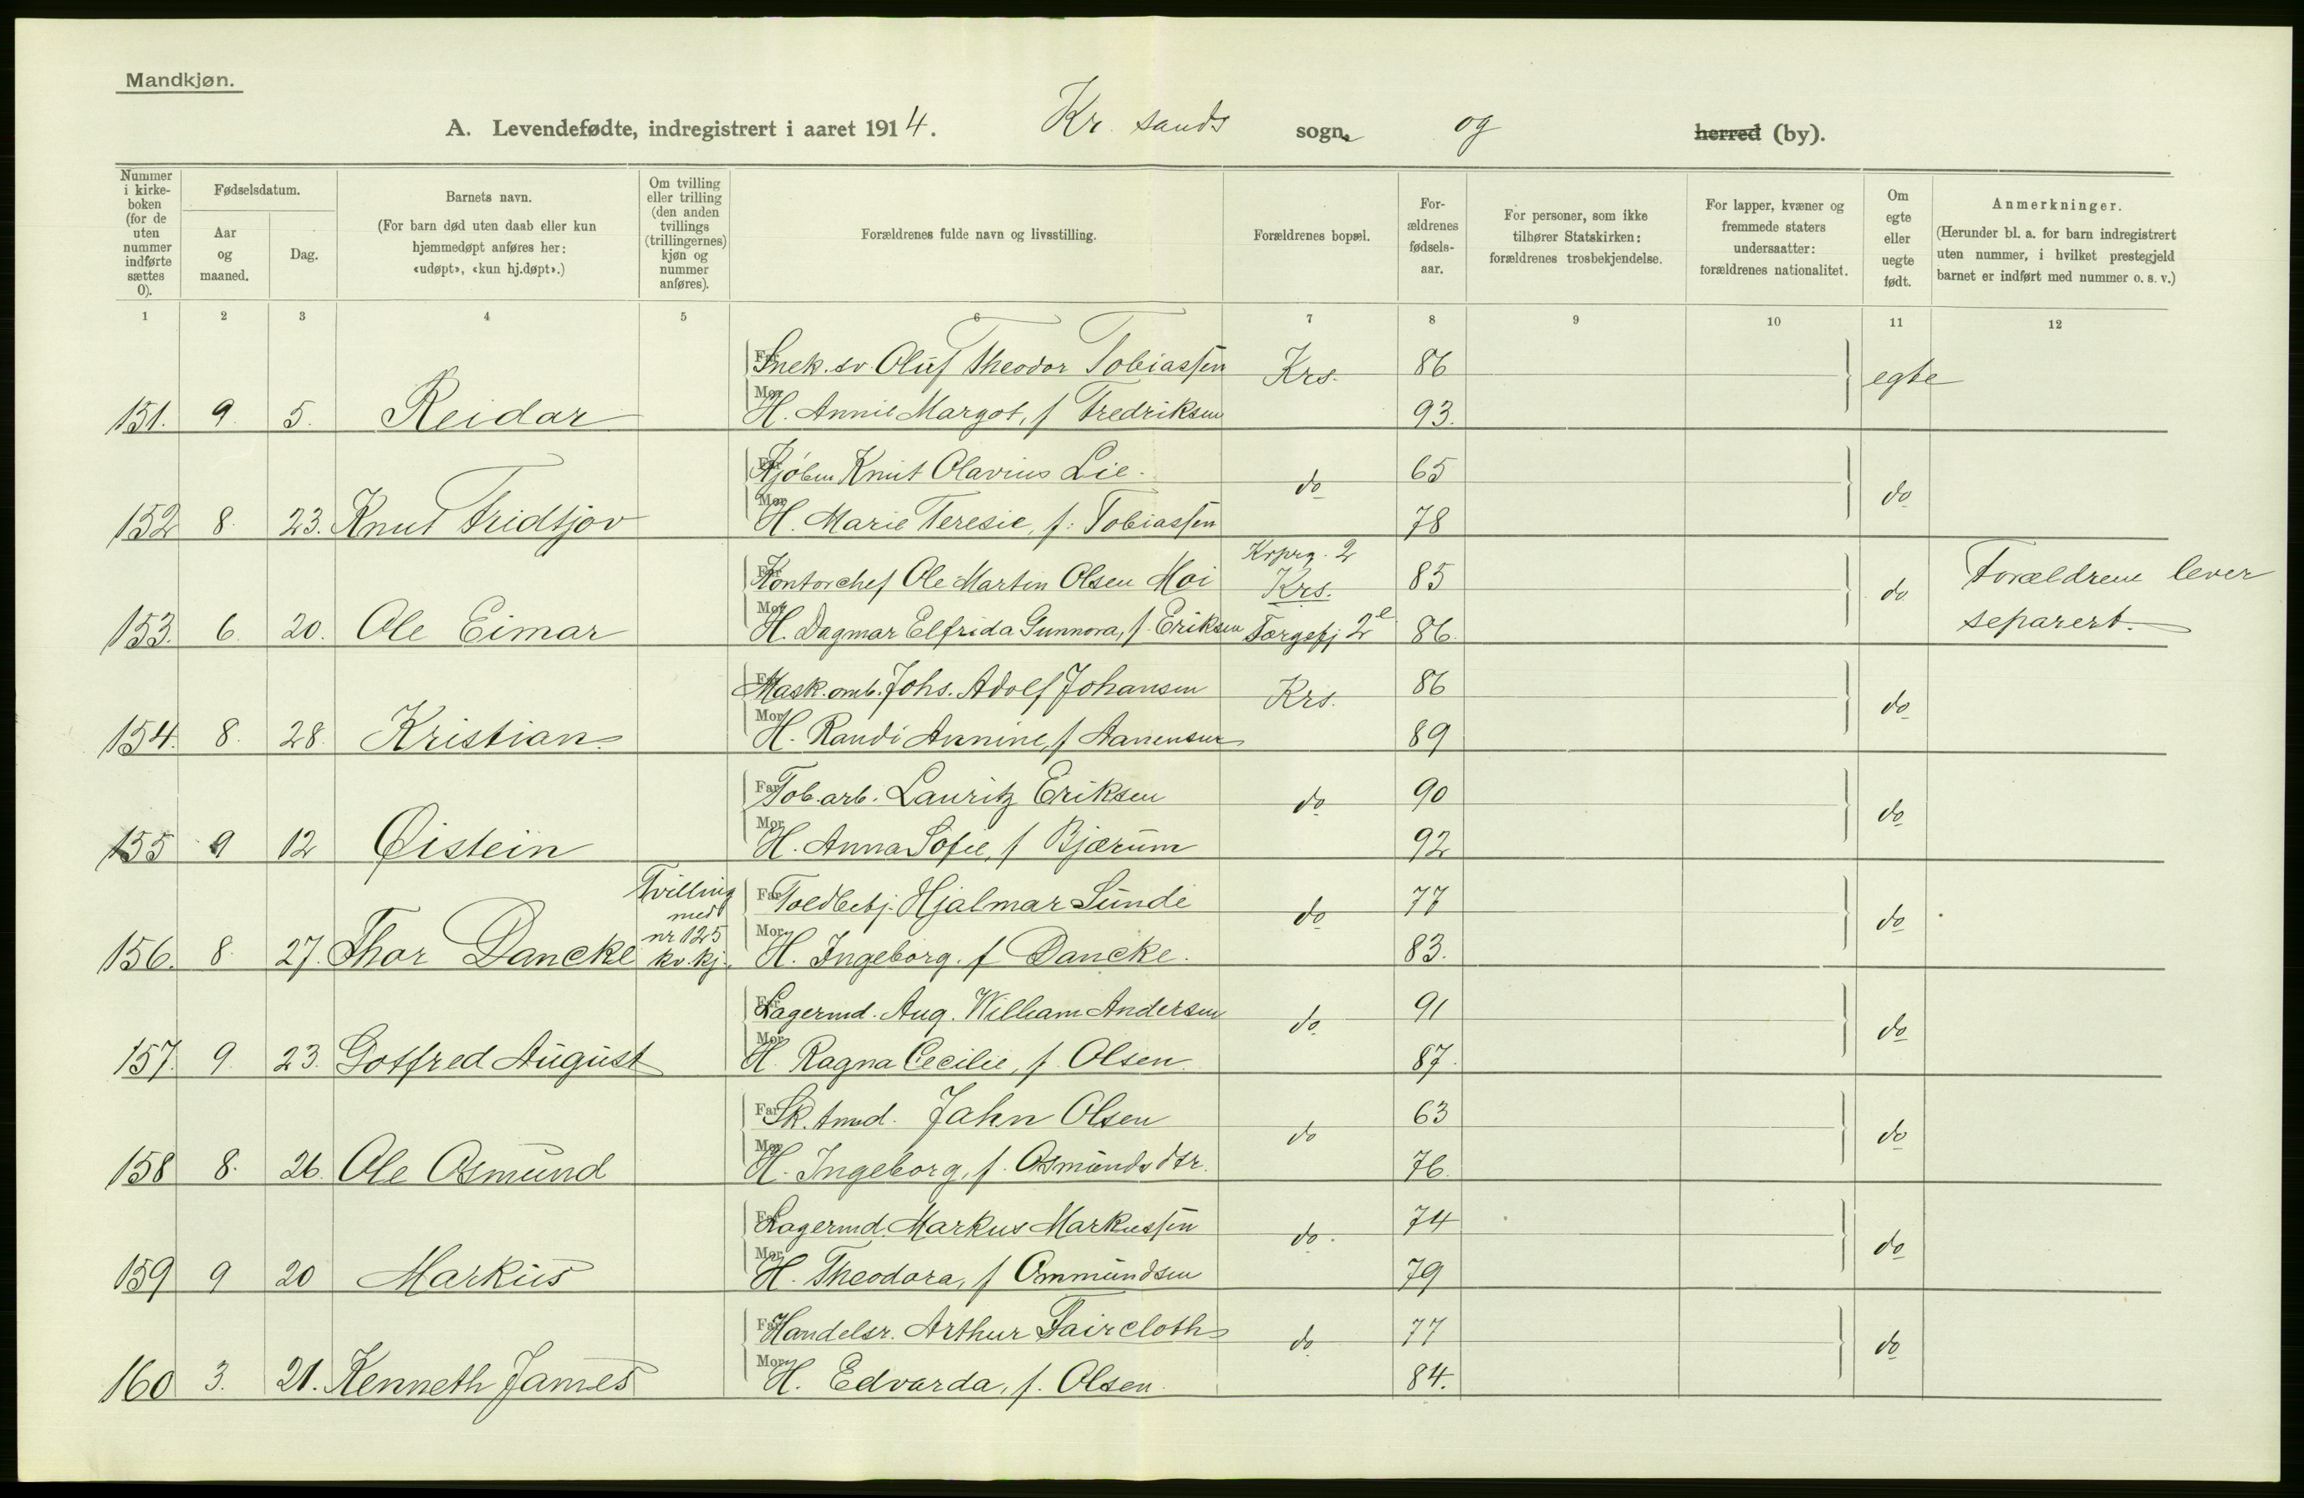 Mandkjøn.
A. Levendefødte, indregistrert i aaret 1914. Kr. sands sogn og herred (by).
Nummer i kirkeboken (for de uten nummer indførte sættes 0).
Fødselsdatum.
Aar og maaned.
Dag.
Barnets navn.
(For barn død uten daab eller kun hjemmedøpt anføres her: «udøpt», «kun hj.døpt».)
Om tvilling eller trilling (den anden tvillings (trillingernes) kjøn og nummer anføres).
Forældrenes fulde navn og livsstilling.
Forældrenes bopæl.
For-
ældrenes
fødsels-
aar.
For personer, som ikke tilhører Statskirken: forældrenes trosbekjendelse.
For lapper, kvæner og fremmede staters undersaatter: forældrenes nationalitet.
Om egte eller uegte født.
Anmerkninger.
(Herunder bl. a. for barn indregistrert uten nummer, i hvilket prestegjeld barnet er indført med nummer o. s. v.)
1 2 3 4 5 6 7 8 9 10 11 12
Far Snek. sv. Oluf Theodor Tobiassen Krs. 86 egte
151. 9. 5. Reidar Mor H. Annie Margot, f Fredriksen 93.
Far Kjøbm Knut Olavius Lie. do 65 do
152 8. 23. Knut Fridtjov Mor H. Marie Teresie, f: Tobiassen 78
Krprg. 2
Far Kontorchef Ole Martin Olsen Moi Krs. 85 do Forældrene lever
153. 6. 20. Ole Eimar Mor H. Dagmar Elfrida Gunnora, f. Eriksen 86. separert.
Far Mask. omb. Johs. Adolf Johansen Krs. 86 do
154. 8. 28. Kristian Mor H. Randi Annine, f Aanensen 89
Far Tob. arb. Lauritz Eriksen do 90 do
155 9 12 Øistein Mor H. Anna Sofie, f Bjærum 92
Tvilling
med
nr 125
kv. kj.
Far Toldbetj. Hjalmar Sunde do 77 do
156. 8. 27. Thor Dancke Mor H. Ingeborg. f Dancke. 83.
Far Lagermd. Aug. William Andersen do 91 do
157. 9. 23. Gotfred August Mor H. Ragna Cecilie, f. Olsen. 87.
Far Sk. tmd. Jahn Olsen do 63 do
158 8. 26. Ole Osmund Mor H. Ingeborg, f. Osmundsdtr. 76.
Far Lagermd. Markus Markussen do. 74 do
159 9 20 Markus Mor H. Theodora, f Ommundsen 79
Far Handelsr. Arthur Faircloth do 77 do
160 3. 21. Kenneth James Mor H. Edvarda, f. Olsen. 84.